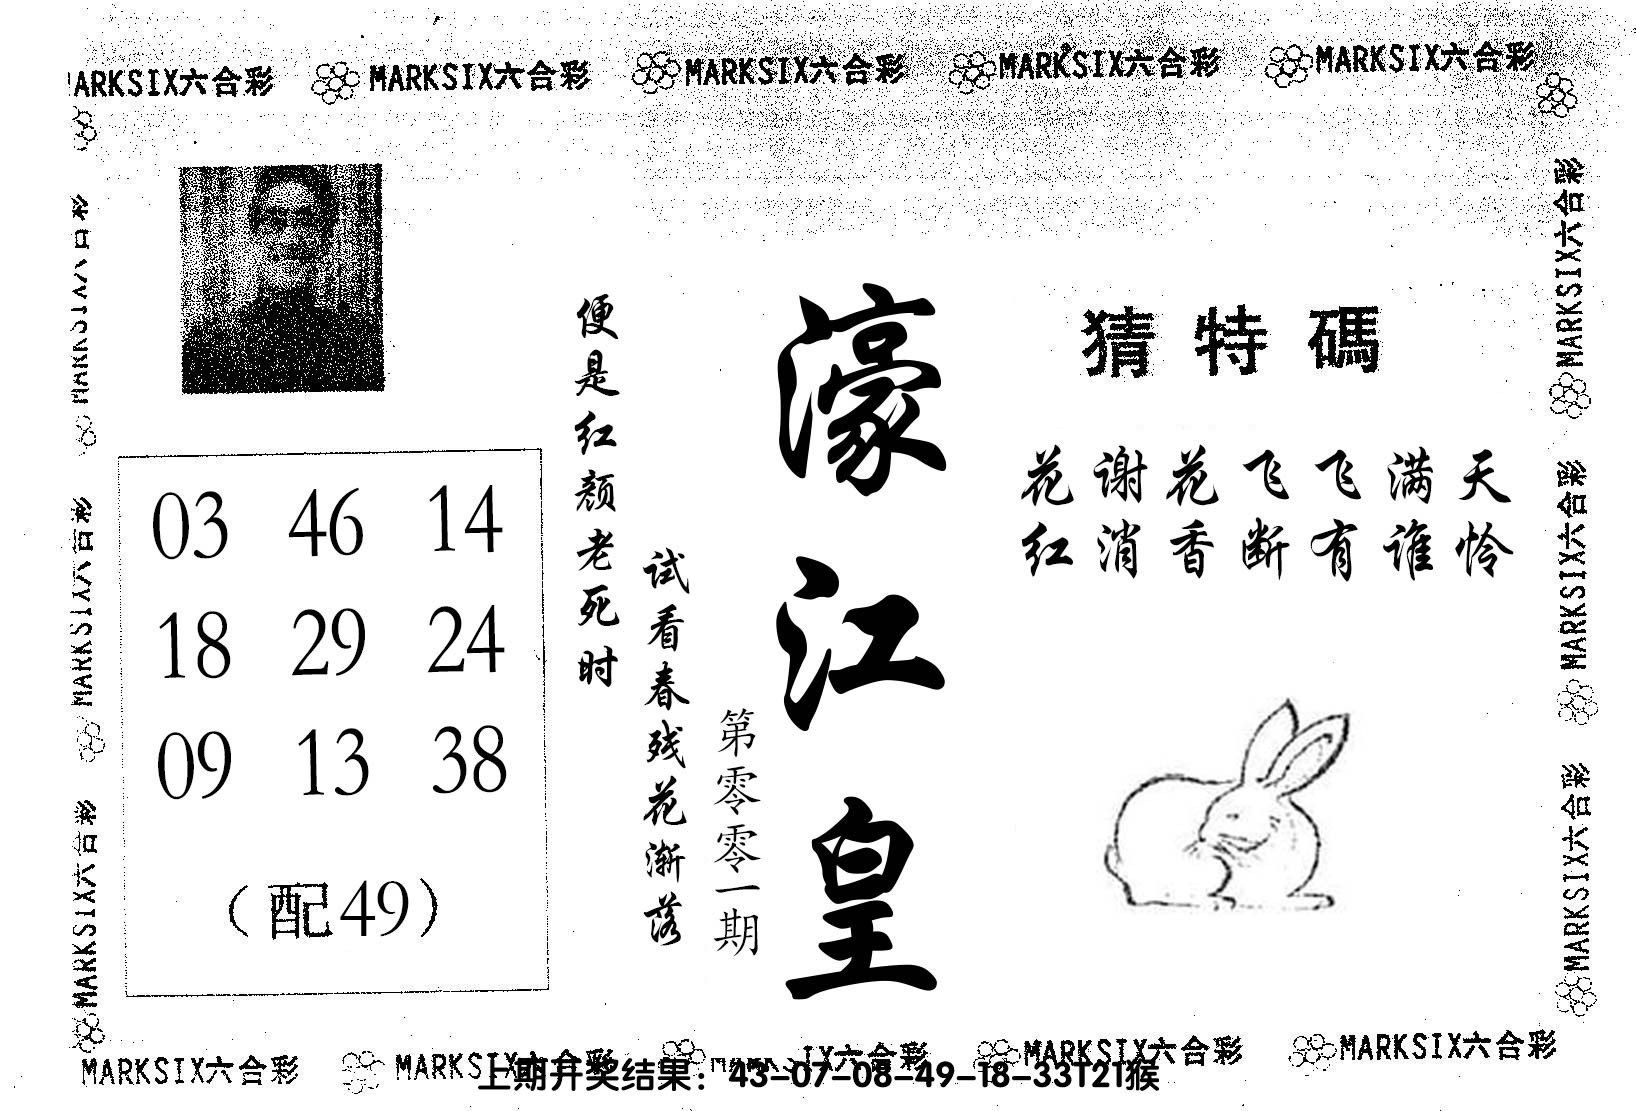 MARKSIX六合彩 MARKSIX六合彩 MARKSIX六合彩 MARKSIX六合彩 MARKSIX六合彩
猜特碼
花谢花飞飞满天
红消香断有谁怜
濠江皇
第零零一期
试看春残花渐落
便是红颜老死时
03 46 14
18 29 24
09 13 38
（配49）
MARKSIX六合彩
MARKSIX六合彩
MARKSIX六合彩
MARKSIX六合彩
MARKSIX六合彩
MARKSIX六合彩
MARKSIX六合彩 MARKSIX六合彩 IX六合彩 MARKSIX六合彩 MARKSIX六合彩
上期开奖结果：43-07-08-49-18-33T21猴